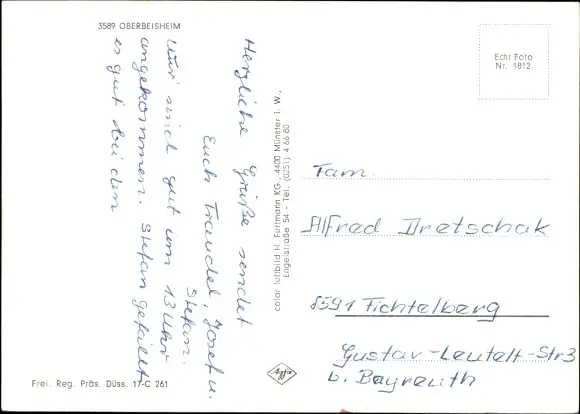 3589 OBERBEISHEIM
Herzliche Grüße sendet
Euch Traudel, Josef u.
Stefan.
Wir sind gut um 13 Uhr
angekommen. Stefan gefällt
es gut bei den
color luftbild H. Furtmann KG., 4400 Münster i. W.,
Engelstraße 54 - Tel. (0251) 4 66 80
Echt Foto
Nr. 1812
Fam.
Alfred Dretschak
8591 Fichtelberg
Gustav-Leutelt-Str3
b. Bayreuth
Agfa
Frei. Reg. Präs. Düss. 17-C 261